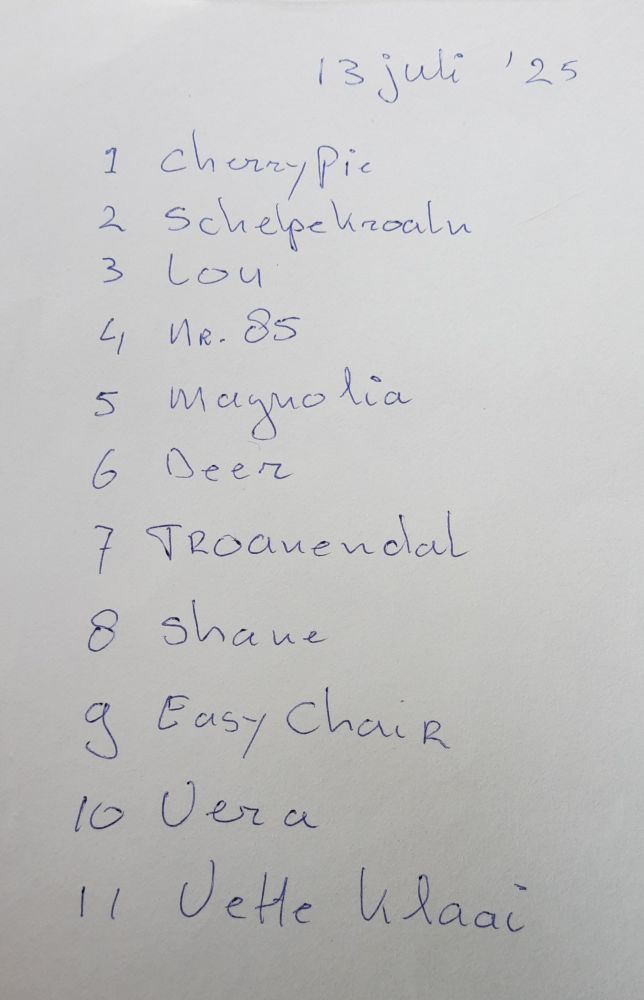 13 juli '25
1 Cherry Pie
2 Schelpekroaln
3 Lou
4 Nr. 85
5 Magnolia
6 Deer
7 Troanendal
8 Shane
9 Easy Chair
10 Vera
11 Vette Klaai